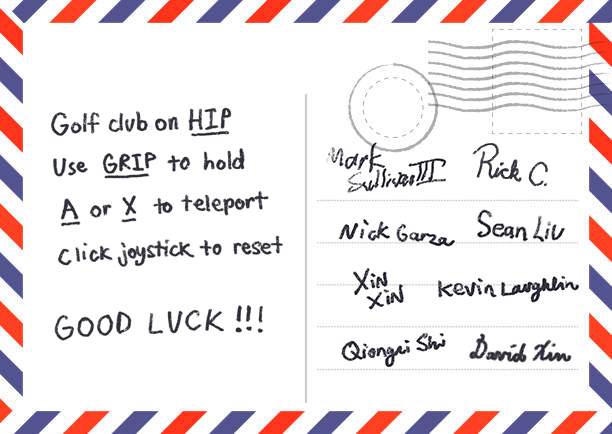 Golf club on HIP
Use GRIP to hold
A or X to teleport
Click joystick to reset
GOOD LUCK !!!
Mark Sullivan III
Rick C.
Nick Garza
Sean Liu
Xin Xin
Kevin Laughlin
Qiongri Shi
David Xin